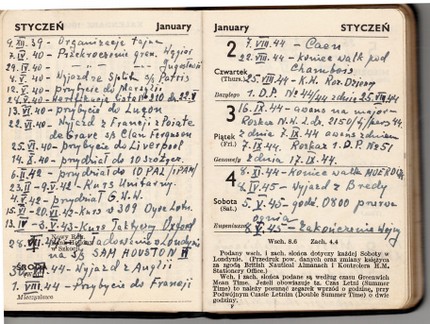 STYCZEŃ January
9.XII.39 - Organizacja tajna
7.IV.40 - Przekroczenie gran. Węgier
" .40 - " " Jugosławii
4. .40 - Wyjazd z Split S/S Patris
12. .40 - przybycie do Marsylii
13.VI.40 - przybycie do Lugon
22.VI.40 - Wyjazd z Francji z Pointe
de Grave s/s Clan Ferguson
25.VI.40 - przybycie do Liverpool
14.X.40 - przydział do
6. .42 - przydział do 10 PAL /1 PAM/
23. - 9.V.42 - Kurs Unitarny.
4. .42 - przydział G.W.W.
- 20. .42 - Kurs w 309 Dyw. Lotn.
13.IV - 3.V.43 - Kurs Taktyczny Oxford
Nowy Rok
28.VII. Załadowanie w Londynie
na S/S SAM HOUSTON II
ŚRODA
.44 - Wyjazd z Anglii
1.VIII.44 - Przybycie do Francji
Mieczysława
January STYCZEŃ
2 7.VIII.44 - Caen
22.VIII.44 - koniec walk pod
Czwartek Chambois
(Thurs.) 25.VIII.44 - K.W. Roz. Dzienny
Bazylego 1.D.P. Nr 44/44 z dnia 25.VIII.44
3 16.IX.44 - awans na major
Rozkaz N.W. L.dz. 2150/G/pers 44.
Piątek z dnia 7.IX.44 awans z dniem
(Fri.) 7.IX.44. Rozkaz 1.D.P. Nr 51
Genowefy z dnia 17.IX.44.
4 8.XI.44 - Koniec walk MOERDIJK
8.IV.45 - Wyjazd z Bredy
Sobota 5.V.45 - godz. 0800 przerw.
(Sat.) ognia
Eugeniusza 8.V.45 - Zakończenie Wojny
Wsch. 8.6 Zach. 4.4
Podany wsch. i zach. słońca dotyczy każdej Soboty w
Londynie. (Przedruk pow. danych oraz zmiany księżyca
za zgodą British Nautical Almanach i Kontrolera H.M.
Stationery Office.)
Wsch. i zach. słońca podane są według czasu Greenwich
Mean Time. Jeżeli obowiązuje tz. Czas Letni (Summer
Time) to należy posunąć zegarek wprzód o godzinę, przy
Podwójnym Czasie Letnim (Double Summer Time) o dwie
godziny.